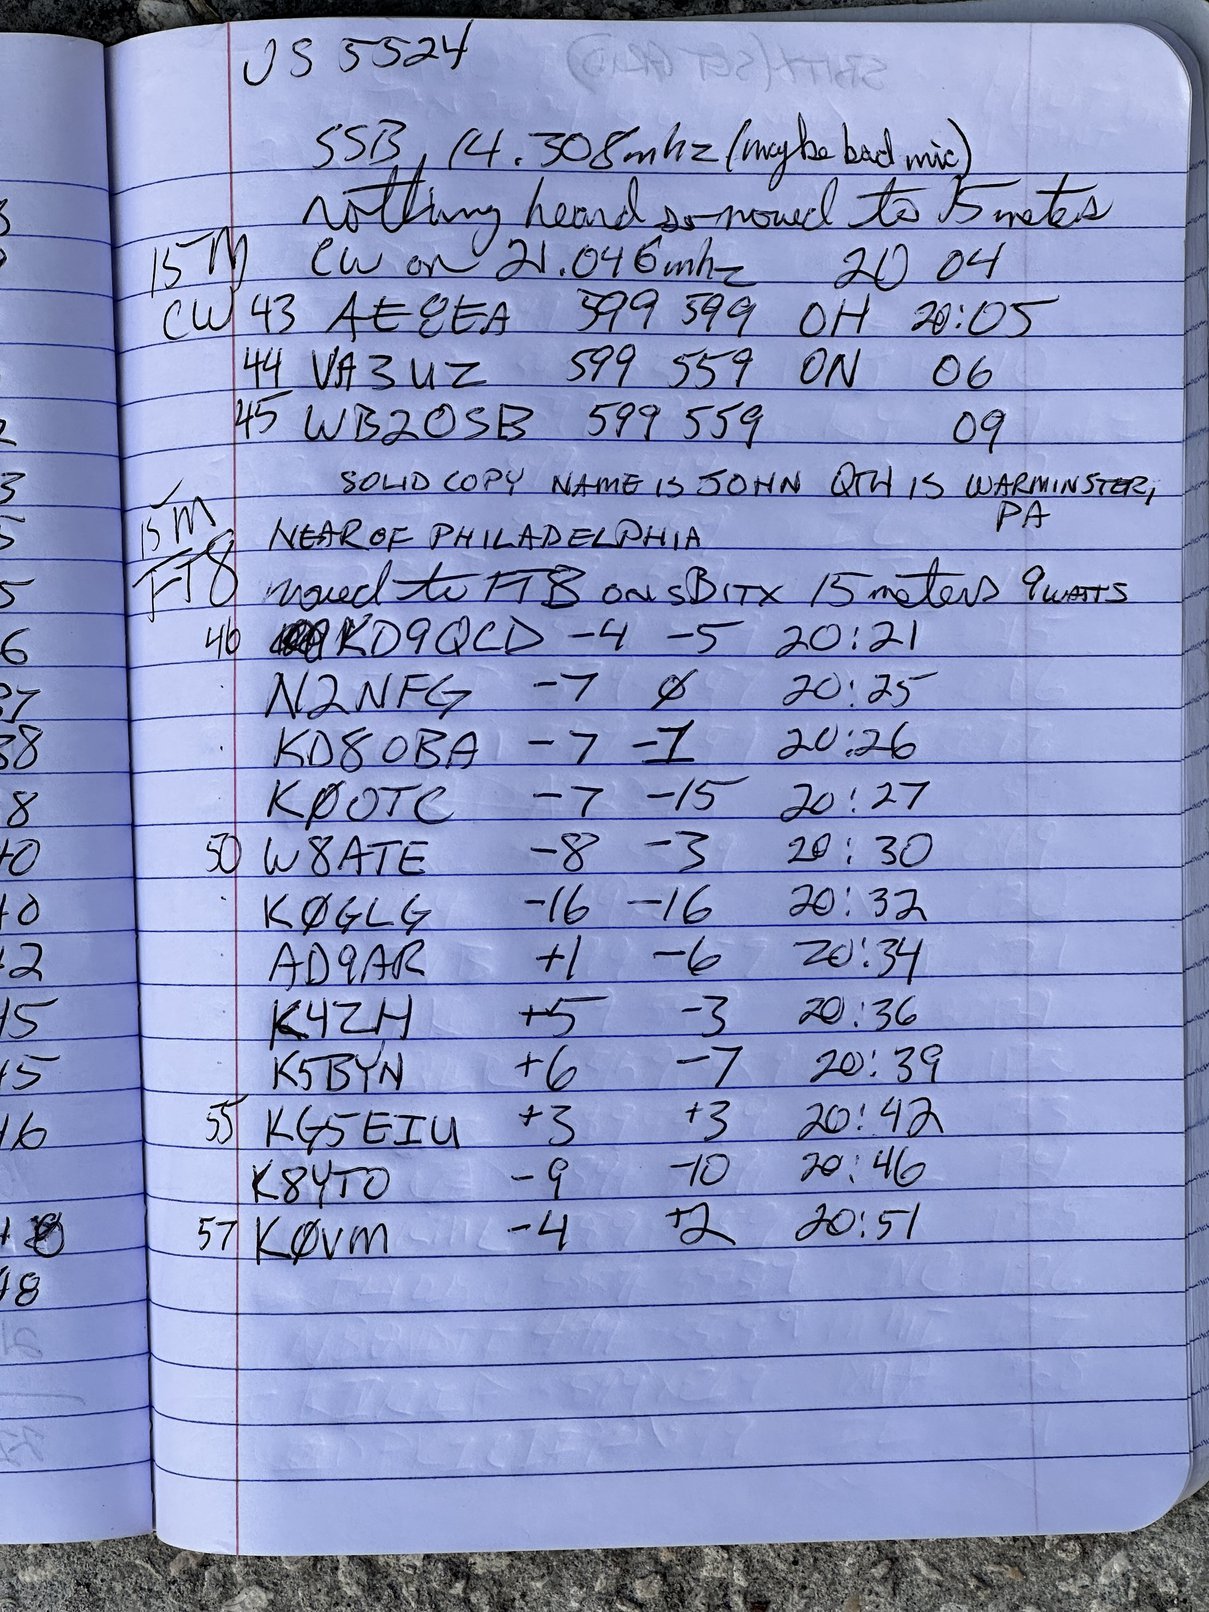 US 5524
SSB, 14.308mhz (maybe bad mic)
nothing heard so moved to 15 meters
15M CW on 21.046mhz 20 04
CW 43 AE8EA 599 599 OH 20:05
44 VA3UZ 599 559 ON 06
45 WB2OSB 599 559 09
SOLID COPY NAME IS JOHN QTH IS WARMINSTER,
PA
15M
NEAR OF PHILADELPHIA
FT8 moved to FT8 ON SBITX 15 meters 9 WATTS
46 KD9QCD -4 -5 20:21
N2NFG -7 Ø 20:25
KD8OBA -7 -1 20:26
KØOTC -7 -15 20:27
50 W8ATE -8 -3 20:30
KØGLG -16 -16 20:32
AD9AR +1 -6 20:34
K4ZH +5 -3 20:36
K5BYN +6 -7 20:39
55 KG5EIU +3 +3 20:42
K8YTO -9 -10 20:46
57 KØVM -4 +2 20:51